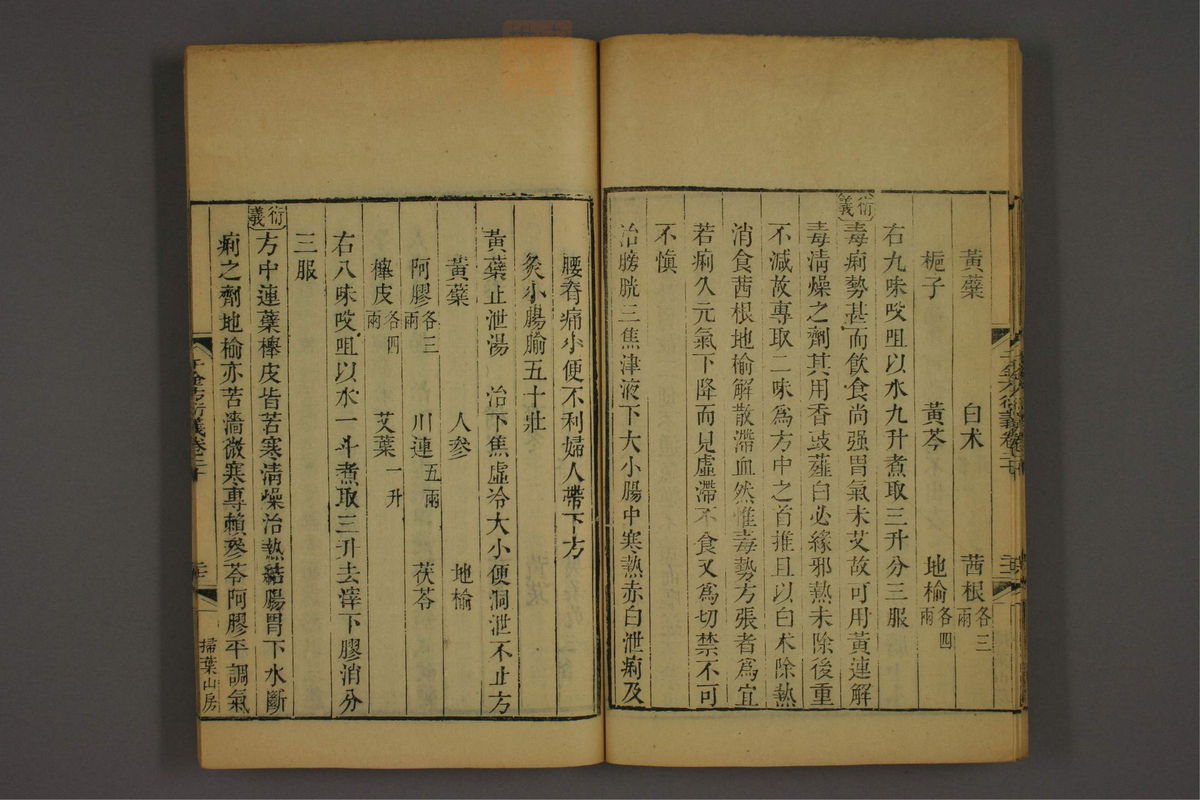 黃蘗 白术 茜根各三兩
梔子 黃芩 地榆各四兩
右九味㕮咀以水九升煮取三升分三服
衍義毒痢勢甚而飲食尚强胃氣未艾故可用黃連解
毒淸燥之劑其用香豉薤白必緣邪熱未除後重
不減故專取二味爲方中之首推且以白术除熱
消食茜根地榆解散滯血然惟毒勢方張者爲宜
若痢久元氣下降而見虛滯不食又爲切禁不可
不愼
治膀胱三焦津液下大小腸中寒熱赤白泄痢及
腰脊痛小便不利婦人帶下方
灸小腸腧五十壯
黃蘗止泄湯 治下焦虛冷大小便洞泄不止方
黃蘗 人參 地榆
阿膠各三兩 川連五兩 茯苓
櫸皮各四兩 艾葉一升
右八味㕮咀以水一斗煮取三升去滓下膠消分
三服
衍義方中連蘗櫸皮皆苦寒淸燥治熱結腸胃下水斷
痢之劑地榆亦苦濇微寒專賴參苓阿膠平調氣
千金方衍義卷二十
掃葉山房